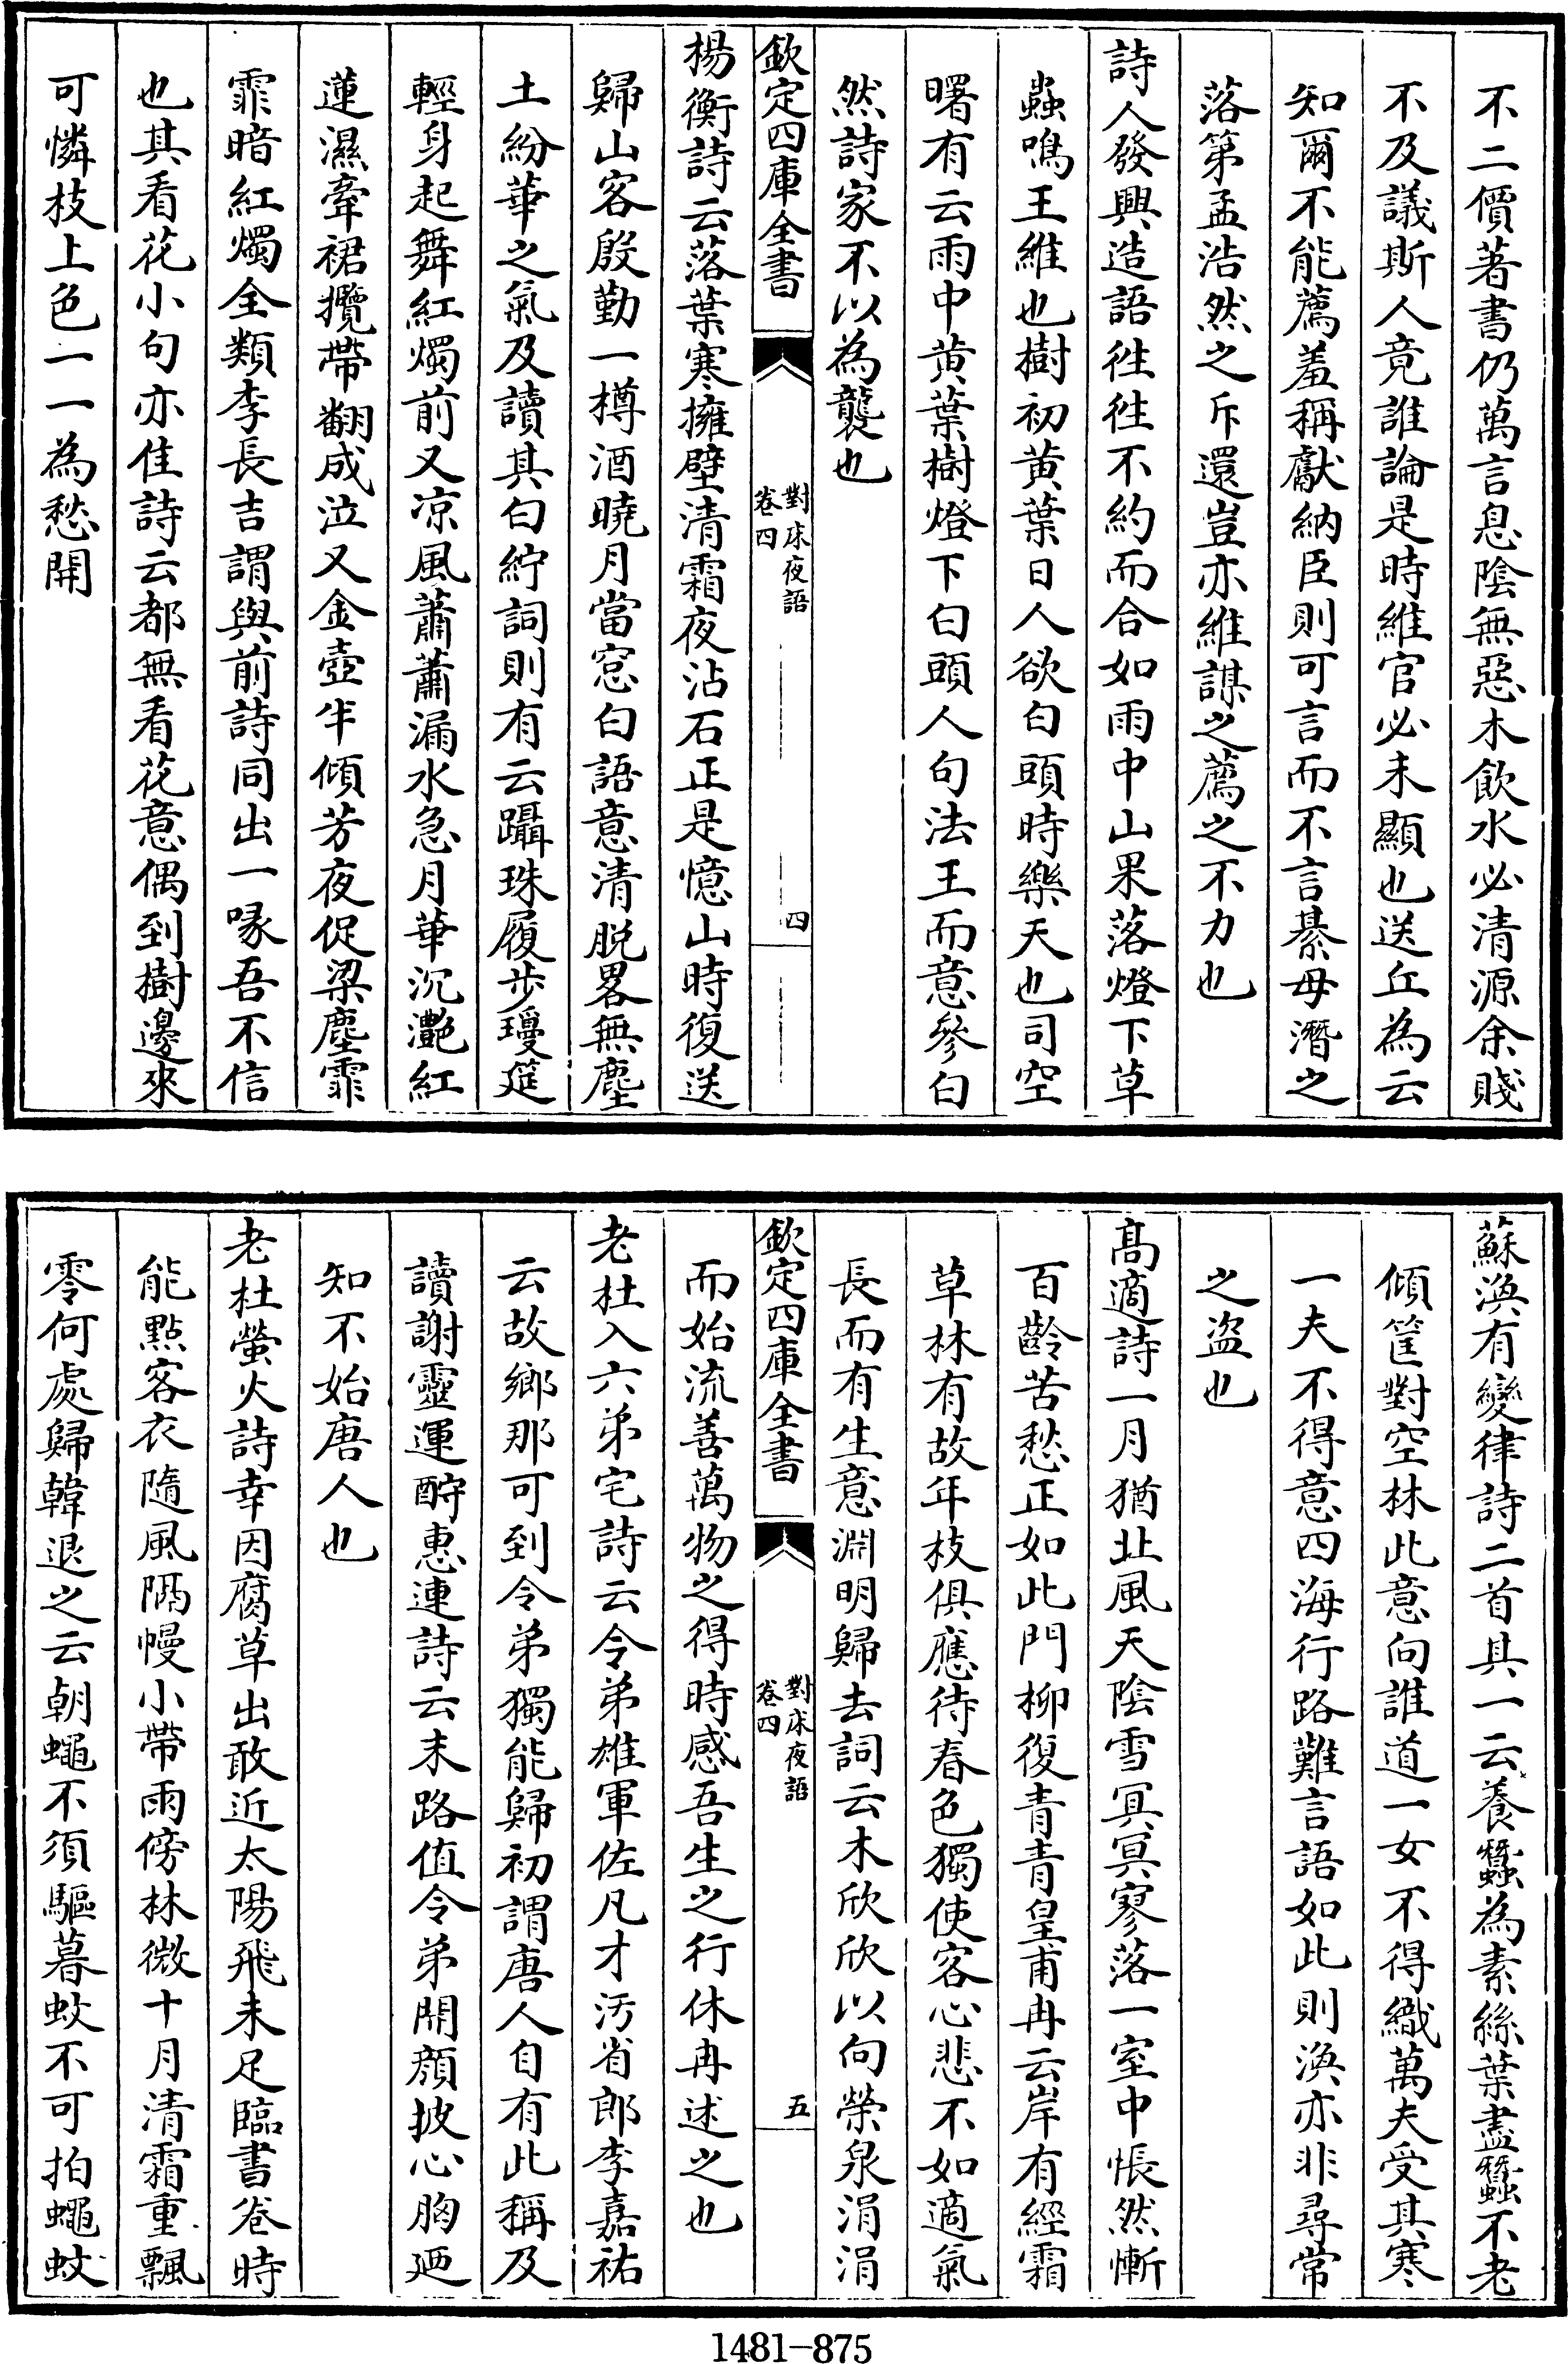 不二價著書仍萬言息陰無惡木飲水必清源余賤
不及議斯人竟誰論是時維官必未顯也送丘為云
知爾不能薦羞稱獻納臣則可言而不言綦毋潛之
落第孟浩然之斥還豈亦維謀之薦之不力也
詩人發興造語徃徃不約而合如雨中山果落燈下草
蟲鳴王維也樹初黄葉日人欲白頭時樂天也司空
曙有云雨中黄葉樹燈下白頭人句法王而意參白
然詩家不以為襲也
欽定四庫全書
對床夜語
卷四
四
楊衡詩云落葉寒擁壁清霜夜沾石正是憶山時復送
歸山客殷勤一樽酒曉月當窓白語意清脱畧無塵
土紛華之氣及讀其白紵詞則有云躡珠履步瓊筵
輕身起舞紅燭前又凉風蕭蕭漏水急月華沉灔紅
蓮濕牽裙攬帶翻成泣又金壺半傾芳夜促梁塵霏
霏暗紅燭全類李長吉謂與前詩同出一喙吾不信
也其看花小句亦佳詩云都無看花意偶到樹邊來
可憐枝上色一一為愁開
蘇渙有變律詩二首其一云養蠶為素絲葉盡蠶不老
傾筐對空林此意向誰道一女不得織萬夫受其寒
一夫不得意四海行路難言語如此則渙亦非尋常
之盗也
髙適詩一月猶北風天陰雪冥冥寥落一室中悵然慚
百齡苦愁正如此門柳復青青皇甫冉云岸有經霜
草林有故年枝俱應待春色獨使客心悲不如適氣
長而有生意淵明歸去詞云木欣欣以向榮泉涓涓
欽定四庫全書
對床夜語
卷四
五
而始流善萬物之得時感吾生之行休冉述之也
老杜入六弟宅詩云令弟雄軍佐凡才汚省郎李嘉祐
云故鄉那可到令弟獨能歸初謂唐人自有此稱及
讀謝靈運酧惠連詩云末路值令弟開顔披心胸廼
知不始唐人也
老杜螢火詩幸因腐草出敢近太陽飛未足臨書卷時
能點客衣隨風隔幔小帶雨傍林微十月清霜重飄
零何處歸韓退之云朝蠅不須驅暮蚊不可拍蠅蚊
1481-875